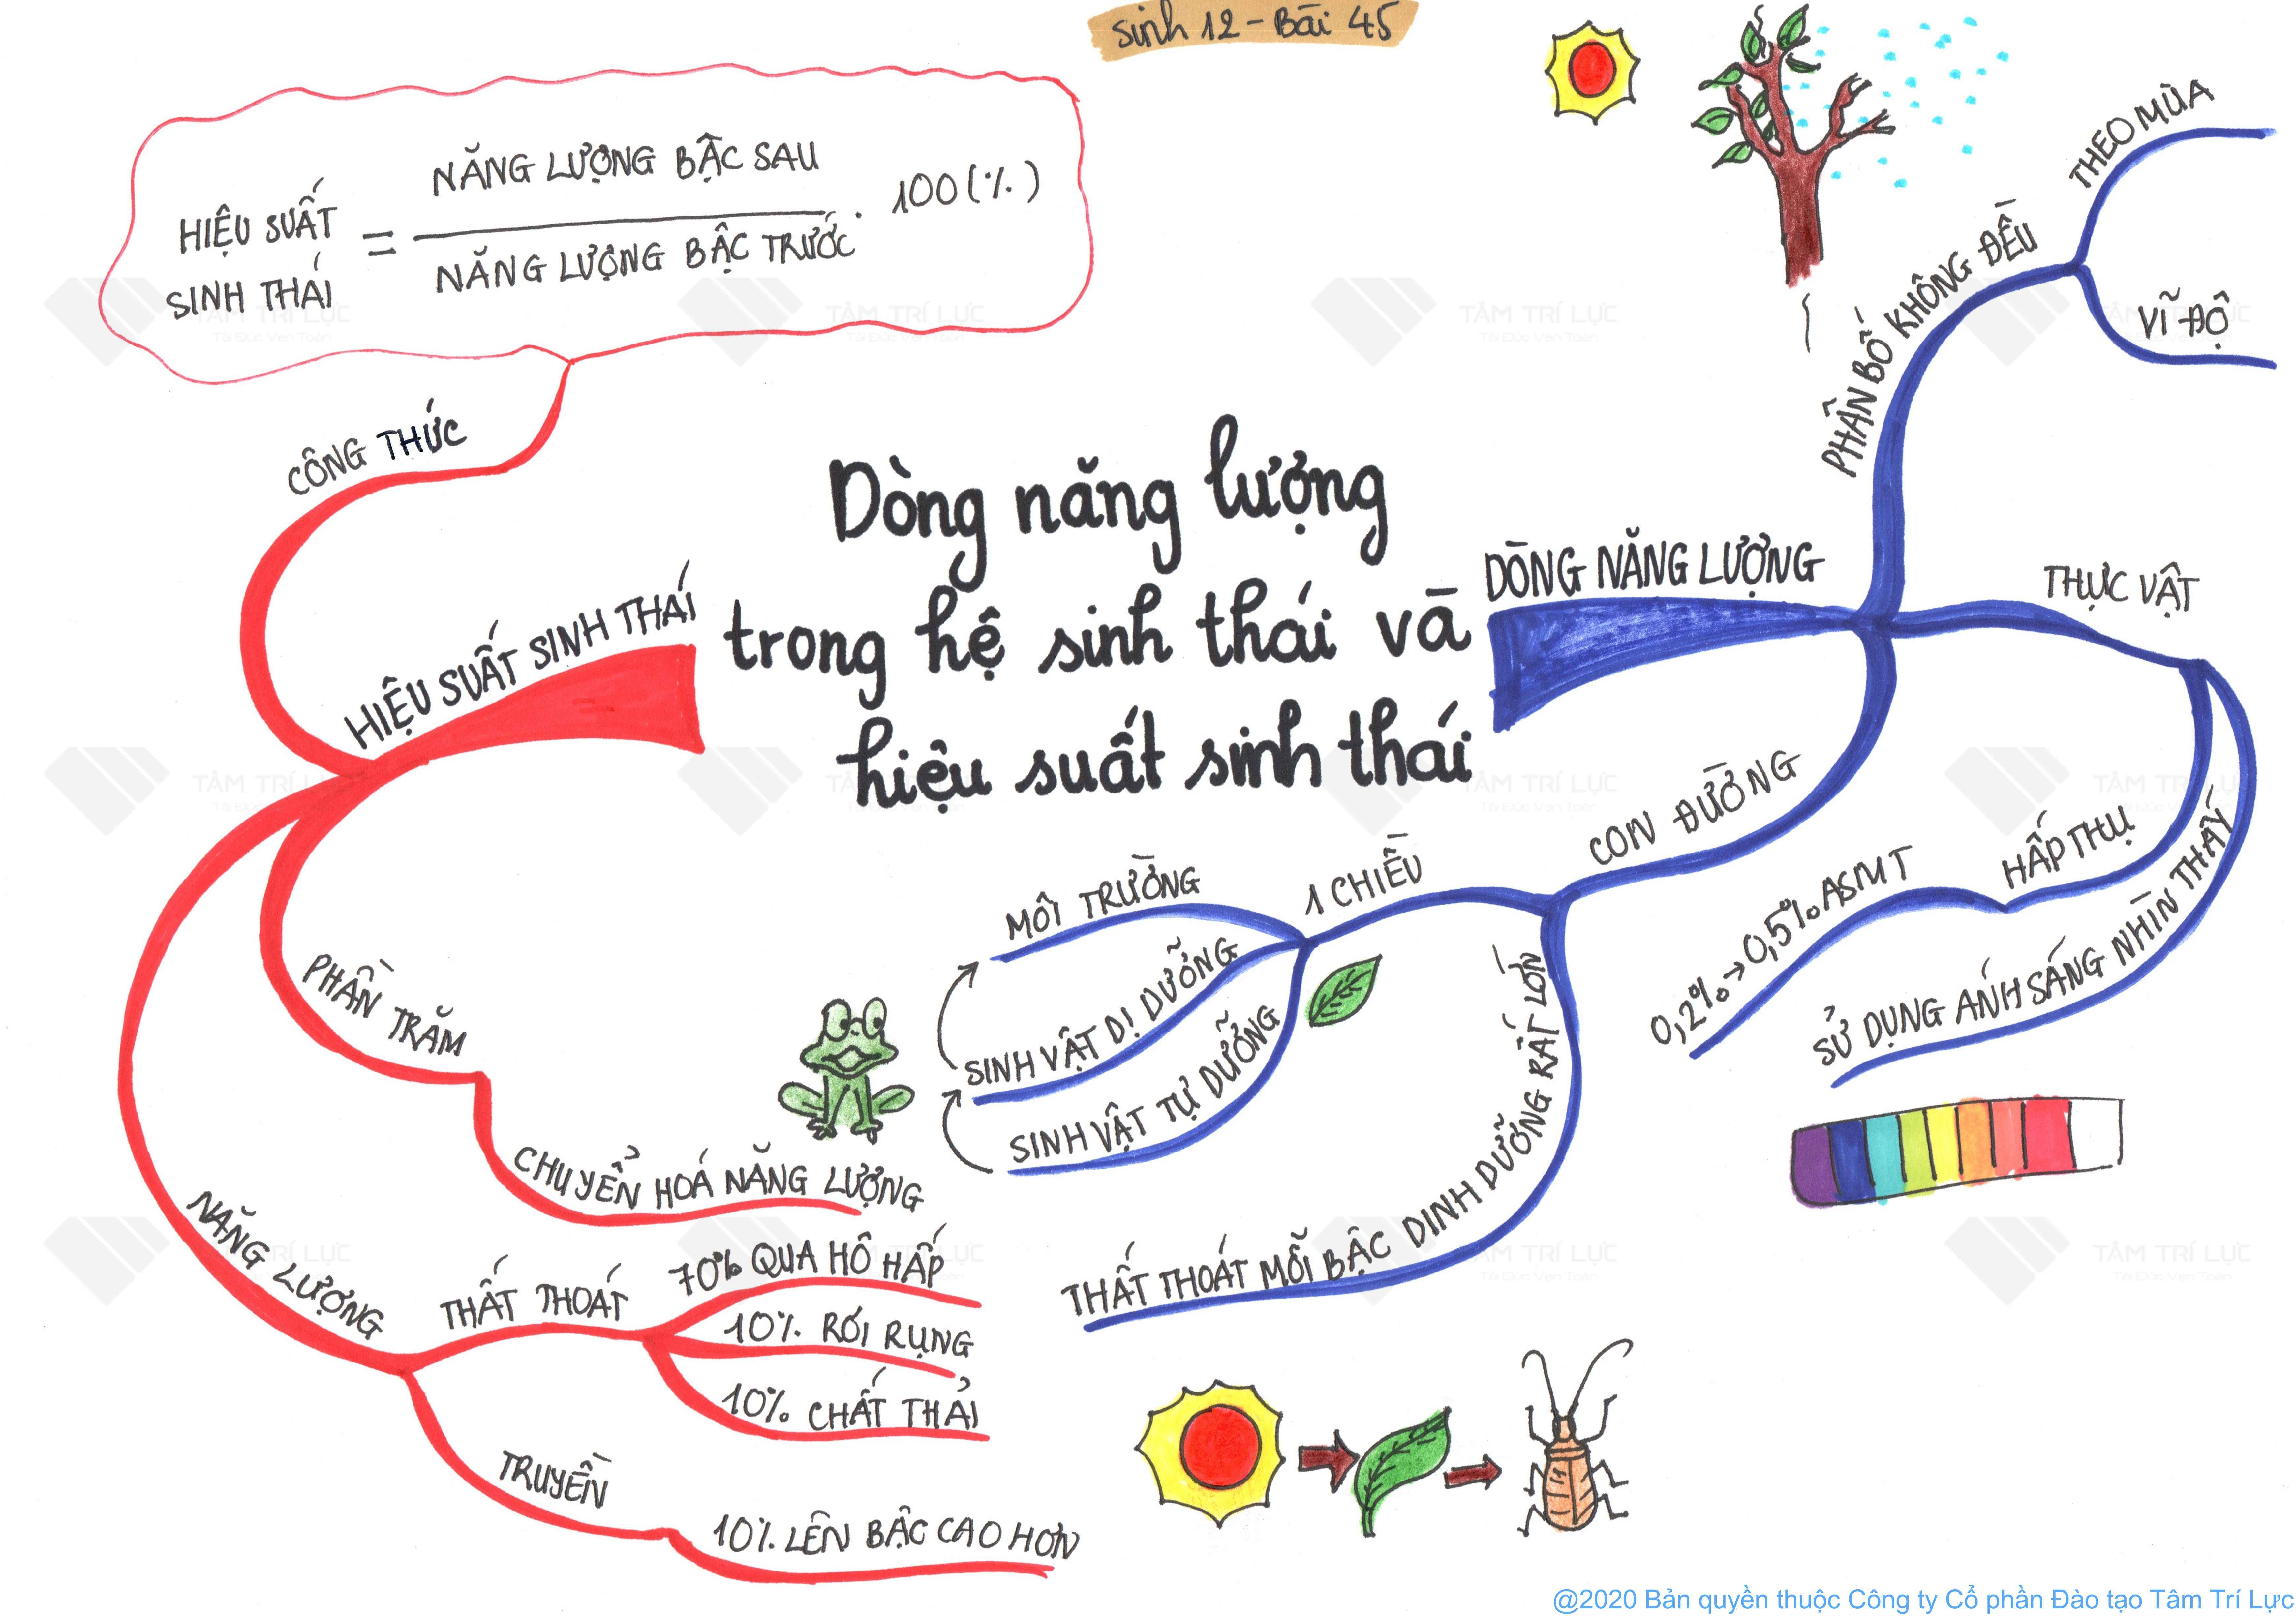 Sinh 12 - Bài 45
Dòng năng lượng
trong hệ sinh thái và
hiệu suất sinh thái
DÒNG NĂNG LƯỢNG
PHÂN BỐ KHÔNG ĐỀU
THEO MÙA
VĨ ĐỘ
THỰC VẬT
HẤP THỤ
0,2% → 0,5% ASMT
SỬ DỤNG ÁNH SÁNG NHÌN THẤY
CON ĐƯỜNG
1 CHIỀU
MÔI TRƯỜNG
SINH VẬT DỊ DƯỠNG
SINH VẬT TỰ DƯỠNG
THẤT THOÁT MỖI BẬC DINH DƯỠNG RẤT LỚN
HIỆU SUẤT SINH THÁI
CÔNG THỨC
HIỆU SUẤT
SINH THÁI
=
NĂNG LƯỢNG BẬC SAU
NĂNG LƯỢNG BẬC TRƯỚC
. 100(%)
PHẦN TRĂM
CHUYỂN HOÁ NĂNG LƯỢNG
NĂNG LƯỢNG
THẤT THOÁT
70% QUA HÔ HẤP
10% RƠI RỤNG
10% CHẤT THẢI
TRUYỀN
10% LÊN BẬC CAO HƠN
TÂM TRÍ LỰC
@2020 Bản quyền thuộc Công ty Cổ phần Đào tạo Tâm Trí Lực